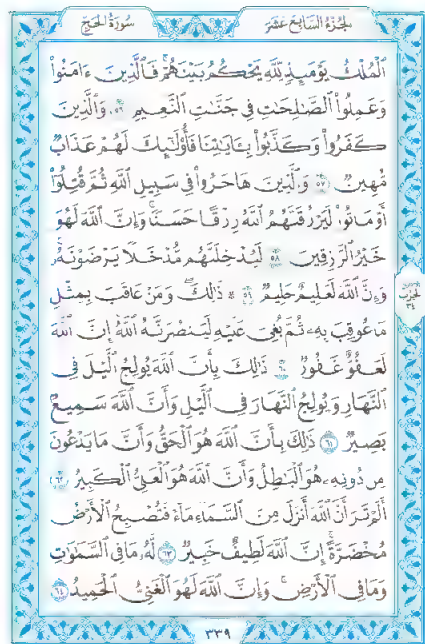 سُورَةُ الحَجِّ الجُزْءُ السَّابِعَ عَشَرَ
ٱلْمُلْكُ يَوْمَئِذٍ لِّلَّهِ يَحْكُمُ بَيْنَهُمْ فَٱلَّذِينَ ءَامَنُوا۟
وَعَمِلُوا۟ ٱلصَّٰلِحَٰتِ فِى جَنَّٰتِ ٱلنَّعِيمِ ٥٦ وَٱلَّذِينَ
كَفَرُوا۟ وَكَذَّبُوا۟ بِـَٔايَٰتِنَا فَأُو۟لَٰٓئِكَ لَهُمْ عَذَابٌ
مُّهِينٌ ٥٧ وَٱلَّذِينَ هَاجَرُوا۟ فِى سَبِيلِ ٱللَّهِ ثُمَّ قُتِلُوٓا۟
أَوْ مَاتُوا۟ لَيَرْزُقَنَّهُمُ ٱللَّهُ رِزْقًا حَسَنًا وَإِنَّ ٱللَّهَ لَهُوَ
خَيْرُ ٱلرَّٰزِقِينَ ٥٨ لَيُدْخِلَنَّهُم مُّدْخَلًا يَرْضَوْنَهُۥ
وَإِنَّ ٱللَّهَ لَعَلِيمٌ حَلِيمٌ ٥٩ ۞ ذَٰلِكَ وَمَنْ عَاقَبَ بِمِثْلِ
مَا عُوقِبَ بِهِۦ ثُمَّ بُغِىَ عَلَيْهِ لَيَنصُرَنَّهُ ٱللَّهُ إِنَّ ٱللَّهَ
لَعَفُوٌّ غَفُورٌ ٦٠ ذَٰلِكَ بِأَنَّ ٱللَّهَ يُولِجُ ٱلَّيْلَ فِى
ٱلنَّهَارِ وَيُولِجُ ٱلنَّهَارَ فِى ٱلَّيْلِ وَأَنَّ ٱللَّهَ سَمِيعٌۢ
بَصِيرٌ ٦١ ذَٰلِكَ بِأَنَّ ٱللَّهَ هُوَ ٱلْحَقُّ وَأَنَّ مَا يَدْعُونَ
مِن دُونِهِۦ هُوَ ٱلْبَٰطِلُ وَأَنَّ ٱللَّهَ هُوَ ٱلْعَلِىُّ ٱلْكَبِيرُ ٦٢
أَلَمْ تَرَ أَنَّ ٱللَّهَ أَنزَلَ مِنَ ٱلسَّمَآءِ مَآءً فَتُصْبِحُ ٱلْأَرْضُ
مُخْضَرَّةً إِنَّ ٱللَّهَ لَطِيفٌ خَبِيرٌ ٦٣ لَّهُۥ مَا فِى ٱلسَّمَٰوَٰتِ
وَمَا فِى ٱلْأَرْضِ وَإِنَّ ٱللَّهَ لَهُوَ ٱلْغَنِىُّ ٱلْحَمِيدُ ٦٤
الحزب
٣٤
٣٣٩